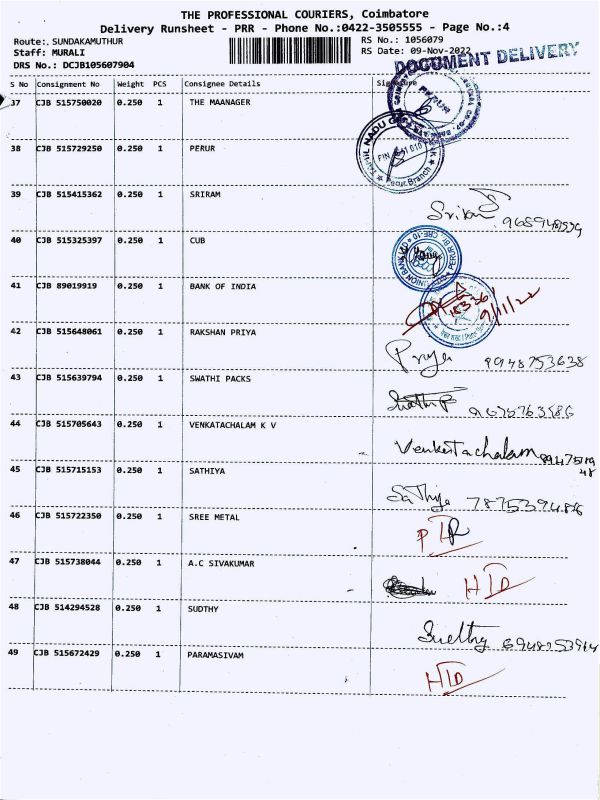 THE PROFESSIONAL COURIERS, Coimbatore
Delivery Runsheet - PRR - Phone No.:0422-3505555 - Page No.:4
Route:. SUNDAKAMUTHUR
Staff: MURALI
DRS No.: DCJB105607904
RS No.: 1056079
RS Date: 09-Nov-2022
DOCUMENT DELIVERY
S No Consignment No Weight PCS Consignee Details Signature
37 CJB 515750020 0.250 1 THE MAANAGER
PERUR
38 CJB 515729250 0.250 1 PERUR
39 CJB 515415362 0.250 1 SRIRAM
40 CJB 515325397 0.250 1 CUB
41 CJB 89019919 0.250 1 BANK OF INDIA
9/11/22
42 CJB 515648061 0.250 1 RAKSHAN PRIYA
Priya 9948753638
43 CJB 515639794 0.250 1 SWATHI PACKS
44 CJB 515705643 0.250 1 VENKATACHALAM K V
Venkatachalam
45 CJB 515715153 0.250 1 SATHIYA
Sathiya 7875394486
46 CJB 515722350 0.250 1 SREE METAL
47 CJB 515738044 0.250 1 A.C SIVAKUMAR
HID
48 CJB 514294528 0.250 1 SUDTHY
49 CJB 515672429 0.250 1 PARAMASIVAM
HID